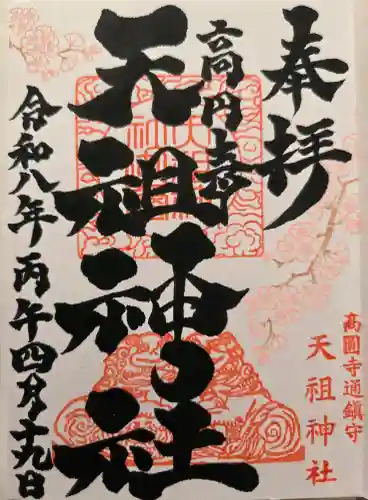 奉拝
高円寺
天祖神社
令和八年丙午四月十九日
高圓寺通鎮守
天祖神社